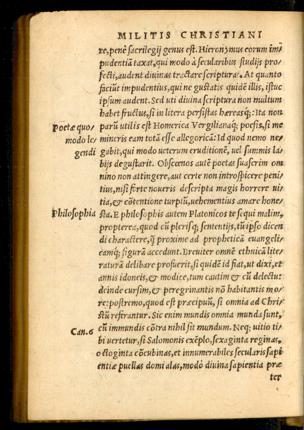 MILITIS CHRISTIANI
re, penè sacrilegij genus est. Hieronymus eorum im̃
pudentiã taxat, qui modò à secularibus studijs pro/
fecti, audent diuinas tractare scripturas. At quanto
faciũt impudentius, qui ne gustatis quidẽ illis, istuc
ipsum audent. Sed uti diuina scriptura non multum
habet fructus, si in litera persistas hæreasq́;: Ita non
Poetæ quo/ parũ utilis est Homerica Vergilianaq́; poesis, si me
modo le/ mineris eam totã esse allegoricã: Id quod nemo ne/
gendi gabit, qui modo ueterum eruditionẽ, uel summis la/
bijs degustarit. Obscœnos autẽ poetas suaserim om
nino non attingere, aut certe non introspicere peni
tius, nisi forte noueris descripta magis horrere ui/
tia, & cõtentione turpiũ, uehementius amare hone/
Philosophia sta. E philosophis autem Platonicos te sequi malim,
propterea, quod cũ plerisq́; sententijs, tũ ipso dicen
di charactere, q̃ proxime ad propheticã euangeli/
camq́; figurã accedunt. Breuiter omnẽ ethnicã lite/
raturã delibare profuerit, si quidẽ id fiat, ut dixi, et
annis idoneis, & modice, tum cautim & cũ delectu:
deinde cursim, & peregrinantis nõ habitantis mo/
re: postremo, quod est præcipuũ, si omnia ad Chri/
stũ refirantur. Sic enim mundis omnia munda sunt,
Can.6 cũ immundis cõtra nihil sit mundum. Neq; uitio ti/
bi uertetur, si Salomonis exẽplo, sexaginta reginas,
octoginta cõcubinas, et innumerabiles secularis sapi
entiæ puellas domi alas, modò diuina sapientia præ
ter